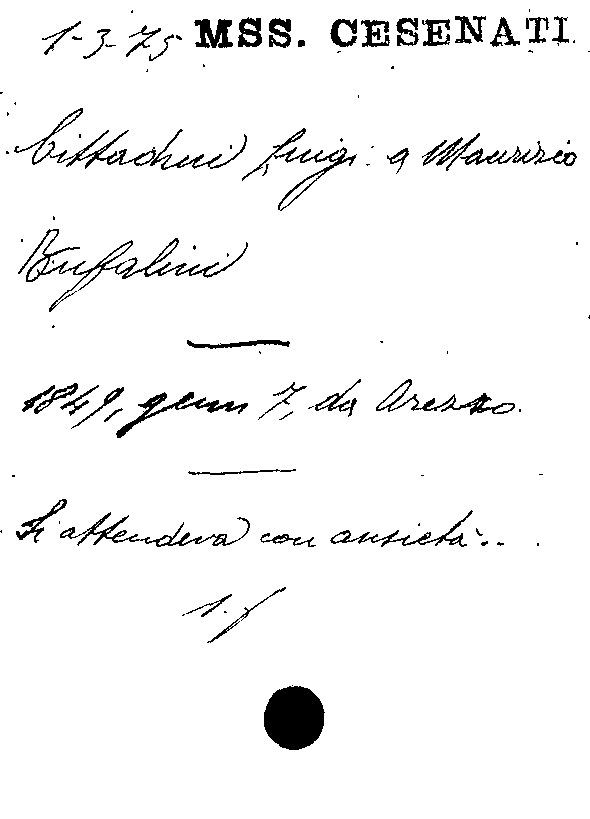 1-3-75 MSS. CESENATI
Cittadini Luigi a Maurizio
Bufalini
1849, genn 7, da Arezzo.
Si attendeva con ansietà...
1. f